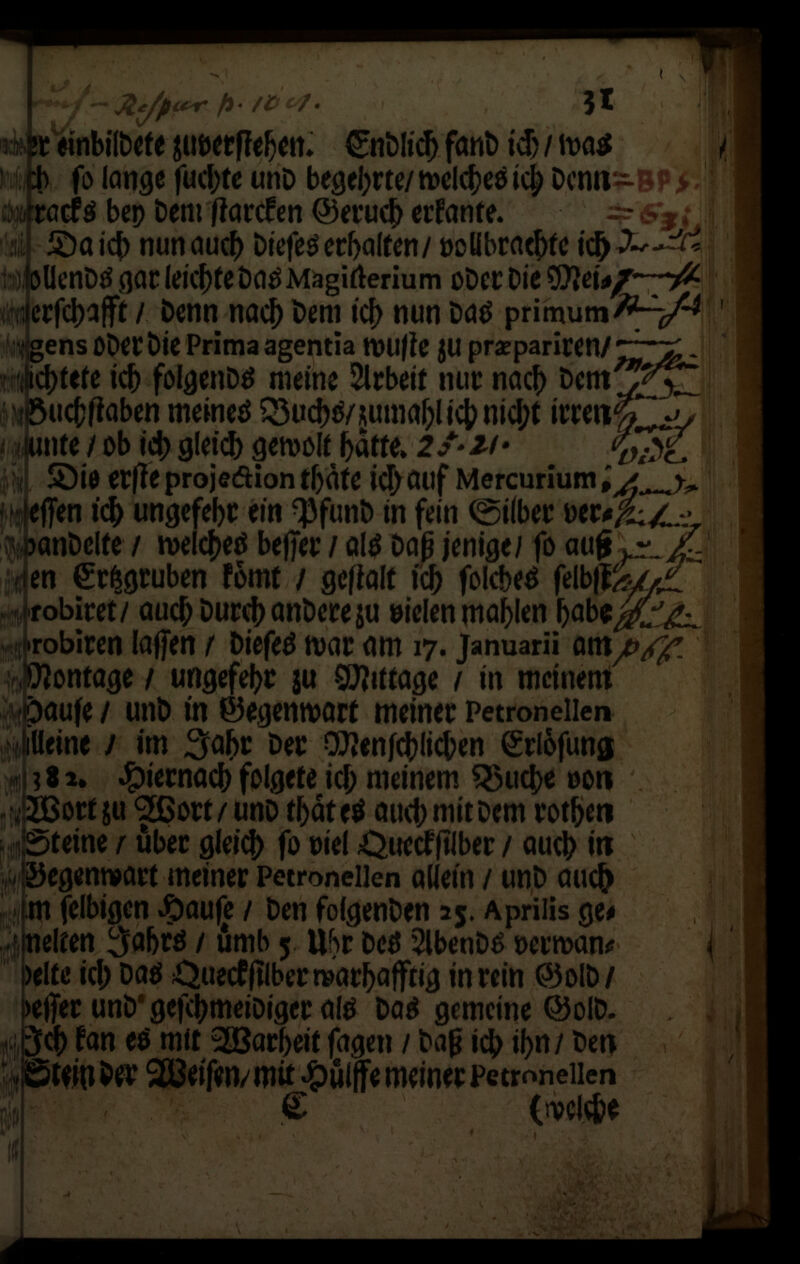 31
einbildete zuverſtehen. Endlich fand ich / was
ſo lange ſuchte und begehrte / welches ich denn
bey dem ſtarcken Geruch erkante.
Da ich nun auch dieſes erhalten / vollbrachte ich
gar leichte das Magiſterium oder die Mei⸗
denn nach dem ich nun das primum
oder die Prima agentia wuſte zu præpariren /
ich folgends meine Arbeit nur nach dem
Buchſtaben meines Buchs / zumahl ich nicht irren
ob ich gleich gewolt haͤtte. 25-21.
Die erſte projection thaͤte ich auf Mercurium,
ich ungefehr ein Pfund in fein Silber ver⸗
welches beſſer / als daß jenige / ſo auß
Ertzgruben koͤmt / geſtalt ich ſolches ſelbſt
auch durch andere zu vielen mahlen habe
laſſen / dieſes war am 17. Januarii am
Montage / ungefehr zu Mittage / in meinem
Hauſe / und in Gegenwart meiner Petronellen
im Jahr der Menſchlichen Erloͤſung
382. Hiernach folgete ich meinem Buche von
Wort zu Wort / und thaͤt es auch mit dem rothen
Steine / uͤber gleich ſo viel Queckſilber / auch in
Gegenwart meiner Petronellen allein / und auch
ſelbigen Hauſe / den folgenden 25. Aprilis ge⸗
Jahrs / uͤmb 5. Uhr des Abends verwan⸗
delte ich das Queckſilber warhafftig in rein Gold /
beſſer und geſchmeidiger als das gemeine Gold.
Ich kan es mit Warheit ſagen / daß ich ihn / den
Stein der Weiſen / mit Huͤlffe meiner Petronellen
C (welche